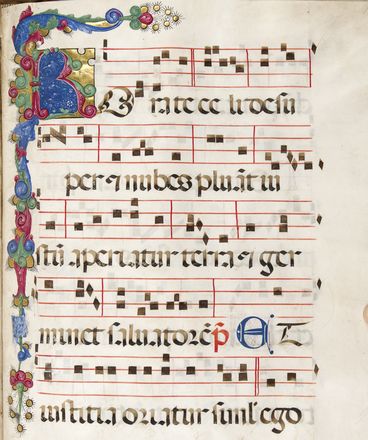 ROrate celi desu
per ⁊ nubes pluāt iu
stū aperiatur terra ⁊ ger
minet saluatorē p̄ ET
iustitia oriatur siml' ego